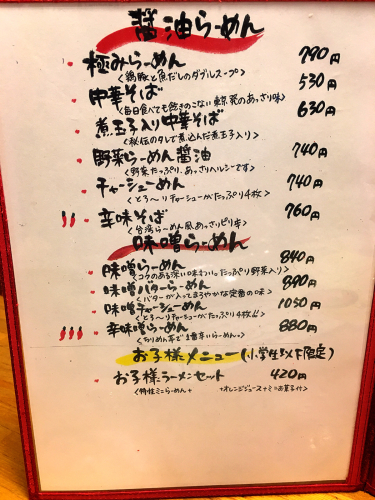 醤油らーめん
極みらーめん 790円
<鶏豚と魚だしのダブルスープ>
中華そば 530
<毎日食べても飽きのこない 昔のあっさり味>
煮玉子入り中華そば 630円
<秘伝のタレで煮込んだ煮玉子入り>
野菜らーめん醤油 740円
<野菜たっぷり、あっさりヘルシーです>
チャーシューめん 740円
<とろ〜りチャーシューがたっぷり4枚>
辛味そば 760円
<台湾らーめん風あっさりピリ辛>
味噌らーめん
味噌らーめん 840円
<コクのある深い味わい。たっぷり野菜入り>
味噌バターらーめん 890円
<バターが入ってまろやかな定番の味>
味噌チャーシューめん 1050円
<とろ〜りチャーシューがたっぷり4枚!!>
辛味噌らーめん 880円
<ちりめん亭で1番辛いらーめん>
お子様メニュー(小学生以下限定)
お子様ラーメンセット 420円
<特性ミニらーめん +オレンジジュース+ミニお菓子付>